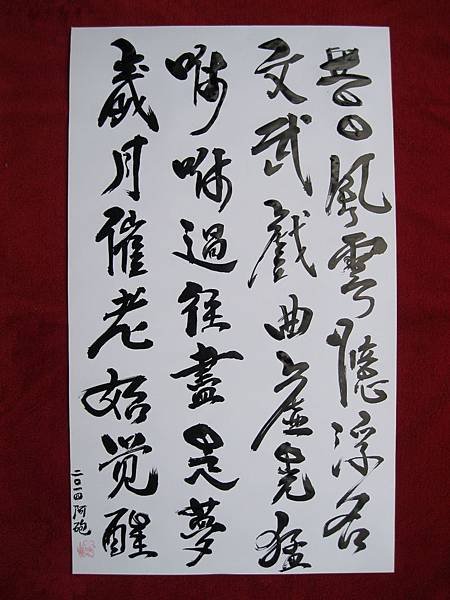 昔日風雲隱浮名
文武戲曲虛晃猛
咻咻過往盡是夢
歲月催老始觉醒
二〇一四阿砲